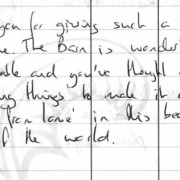 you for giving such a
The Barn is wonder
and you've thought
things to make it
'from home' in this bea
of the world.